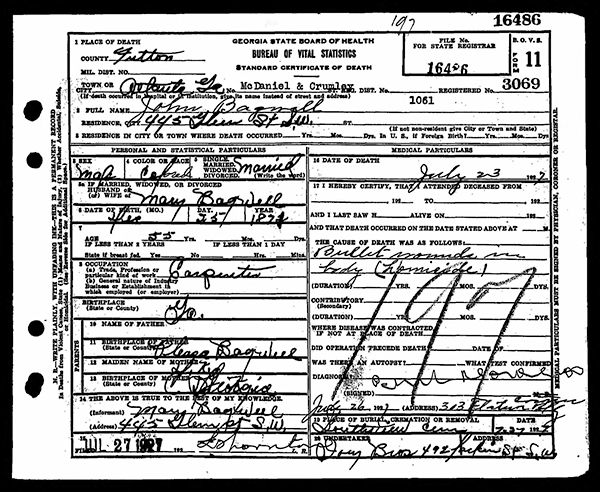 197
16486
1 PLACE OF DEATH
GEORGIA STATE BOARD OF HEALTH
BUREAU OF VITAL STATISTICS
STANDARD CERTIFICATE OF DEATH
FILE No.
FOR STATE REGISTRAR
16486
B. O. V. S.
FORM 11
COUNTY Fulton
MIL. DIST. NO.
TOWN OR
CITY Atlanta Ga McDaniel & Crumley ST. REGISTERED NO. 3069
(If death occurred in hospital or institution, give its name instead of street and address)
1061
2 FULL NAME John Bagwell
RESIDENCE 445 Glenn St S.W. ST.
(If not non-resident give City or Town and State)
RESIDENCE IN CITY OR TOWN WHERE DEATH OCCURRED Yrs. Mos. Dys. In U. S., if Foreign Birth? Yrs. Mos. Dys.
PERSONAL AND STATISTICAL PARTICULARS
MEDICAL PARTICULARS
3 SEX
4 COLOR OR RACE
5 SINGLE
MARRIED
WIDOWED
DIVORCED
Married
(Write the word)
5a IF MARRIED, WIDOWED, OR DIVORCED
HUSBAND OF
(or) WIFE OF Mary Bagwell
6 DATE OF BIRTH (MO.) Dec (DAY) 25 (YEAR)
7 AGE 55
IF LESS THAN 2 YEARS
IF LESS THAN 1 DAY
State if breast fed. Yes No Hrs. Min.
8 OCCUPATION
(a) Trade, Profession or
particular kind of work Carpenter
(b) General nature of Industry
Business or Establishment in
which employed (or employer)
9 BIRTHPLACE
(State or County) Ga.
PARENTS
10 NAME OF FATHER
11 BIRTHPLACE OF FATHER
(State or County)
Bagwell
12 MAIDEN NAME OF MOTHER
13 BIRTHPLACE OF MOTHER
(State or County)
14 THE ABOVE IS TRUE TO THE BEST OF MY KNOWLEDGE
(Informant) Mary Bagwell
(Address) 445 Glenn St S.W.
15 JUL 27 1927 192 L. R.
16 DATE OF DEATH
July 23 1927
17 I HEREBY CERTIFY, THAT I ATTENDED DECEASED FROM
192 TO 192
AND I LAST SAW H ALIVE ON 192
AND THAT DEATH OCCURRED ON THE DATE STATED ABOVE AT M.
THE CAUSE OF DEATH WAS AS FOLLOWS:
Bullet wounds in
body (homicide)
(DURATION) YRS. MOS. DYS.
CONTRIBUTORY
(Secondary)
(DURATION) YRS. MOS. DYS.
WHERE DISEASE WAS CONTRACTED
IF NOT AT PLACE OF DEATH
DID OPERATION PRECEDE DEATH
WAS THERE AN AUTOPSY? WHAT TEST CONFIRMED
DIAGNOSIS
(SIGNED)
197
July 26 1927 313
19 PLACE OF BURIAL, CREMATION OR REMOVAL DATE
Southview Cem 7-27 1927
20 UNDERTAKER ADDRESS
Bros 492 St S.W.